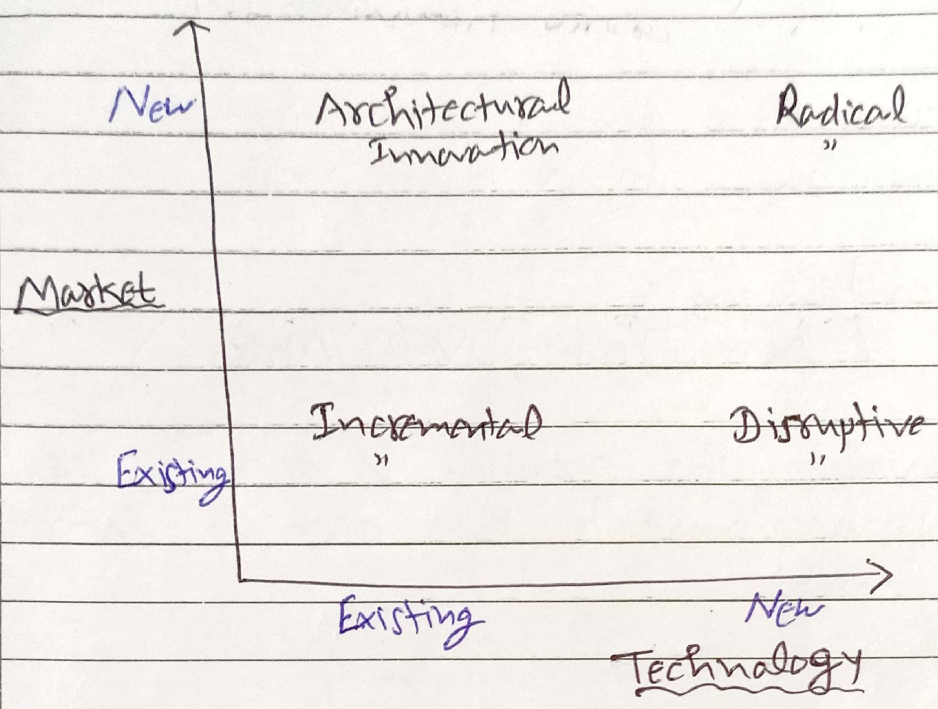 New
Architectural
Innovation
Radical
"
Market
Incremental
"
Disruptive
"
Existing
Existing
New
Technology